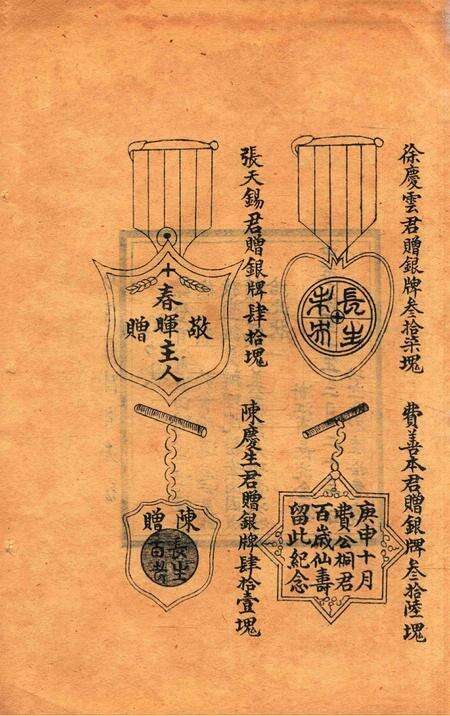 徐慶雲君贈銀牌叁拾柒塊
長生
未央
張天錫君贈銀牌肆拾塊
敬
春暉主人
贈
費善本君贈銀牌叁拾陸塊
庚申十月
費公桐君
百歲仙壽
留此紀念
陳慶生君贈銀牌肆拾壹塊
陳贈
長生
百